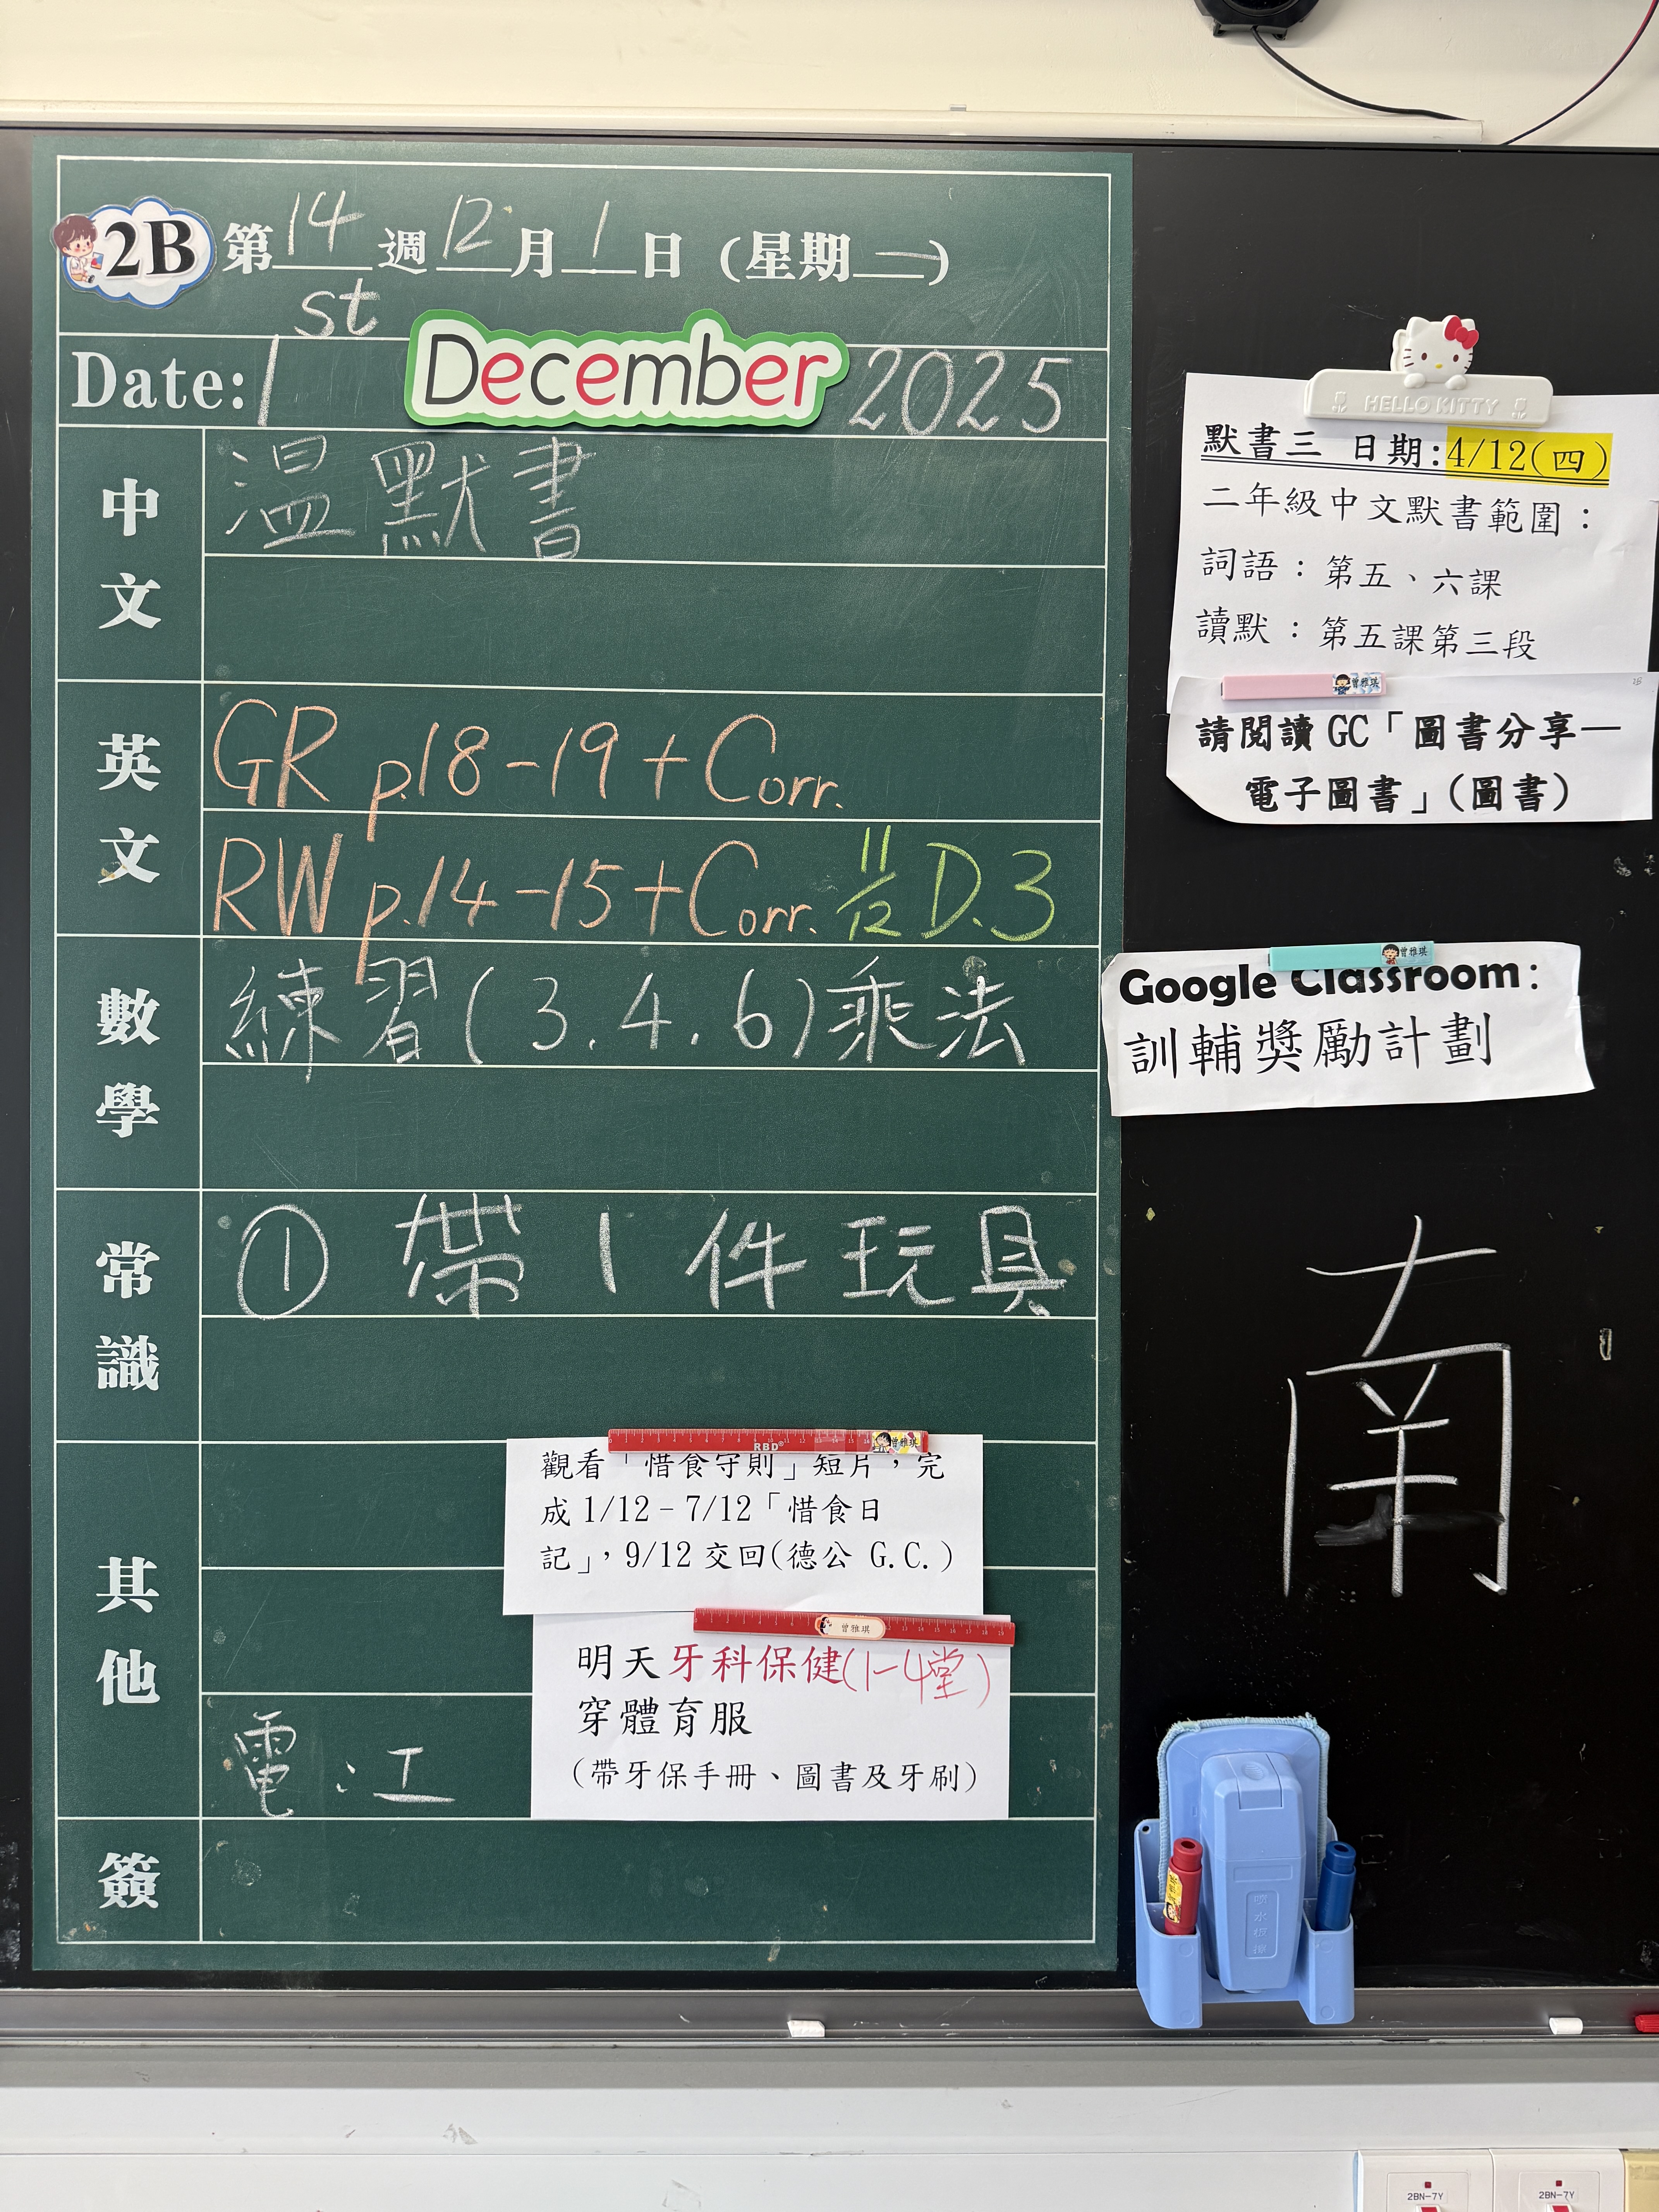 2B 第14週12月1日 (星期一)
Date: 1st December 2025
中文
溫默書
英文
GR p.18-19 + Corr.
RW p.14-15 + Corr. 11/12 D.3
數學
練習(3.4.6)乘法
常識
① 帶1件玩具
其他
觀看「惜食守則」短片，完
成1/12-7/12「惜食日
記」，9/12交回(德公 G.C.)
RBD
曾雅琪
曾雅琪
明天牙科保健(1-4堂)
穿體育服
(帶牙保手冊、圖書及牙刷)
電:工
簽
HELLO KITTY
默書三 日期:4/12(四)
二年級中文默書範圍：
詞語：第五、六課
讀默：第五課第三段
曾雅琪
請閱讀 GC「圖書分享—
電子圖書」(圖書)
曾雅琪
Google Classroom:
訓輔獎勵計劃
南
2BN-7Y
2BN-7Y